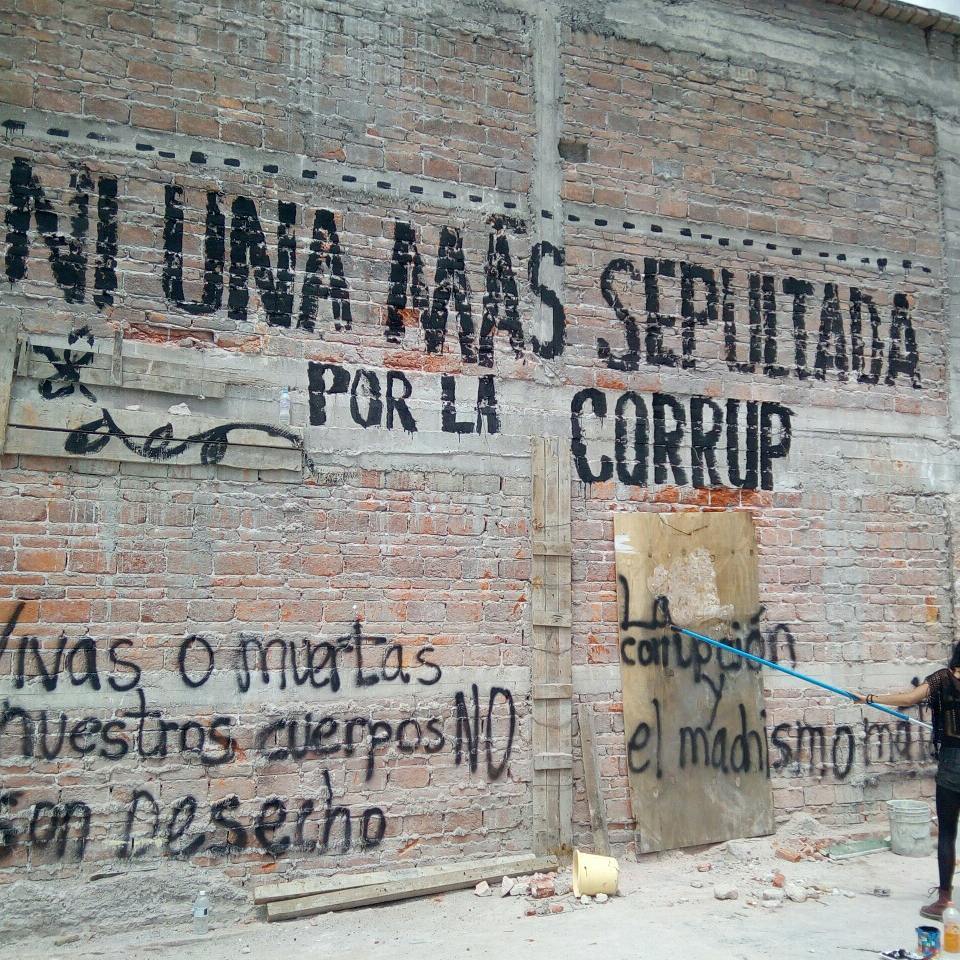 NI UNA MÁS SEPULTADA
POR LA CORRUP
Vivas o muertas
nuestros cuerpos NO
son Desecho
La
corrupción
y
el machismo